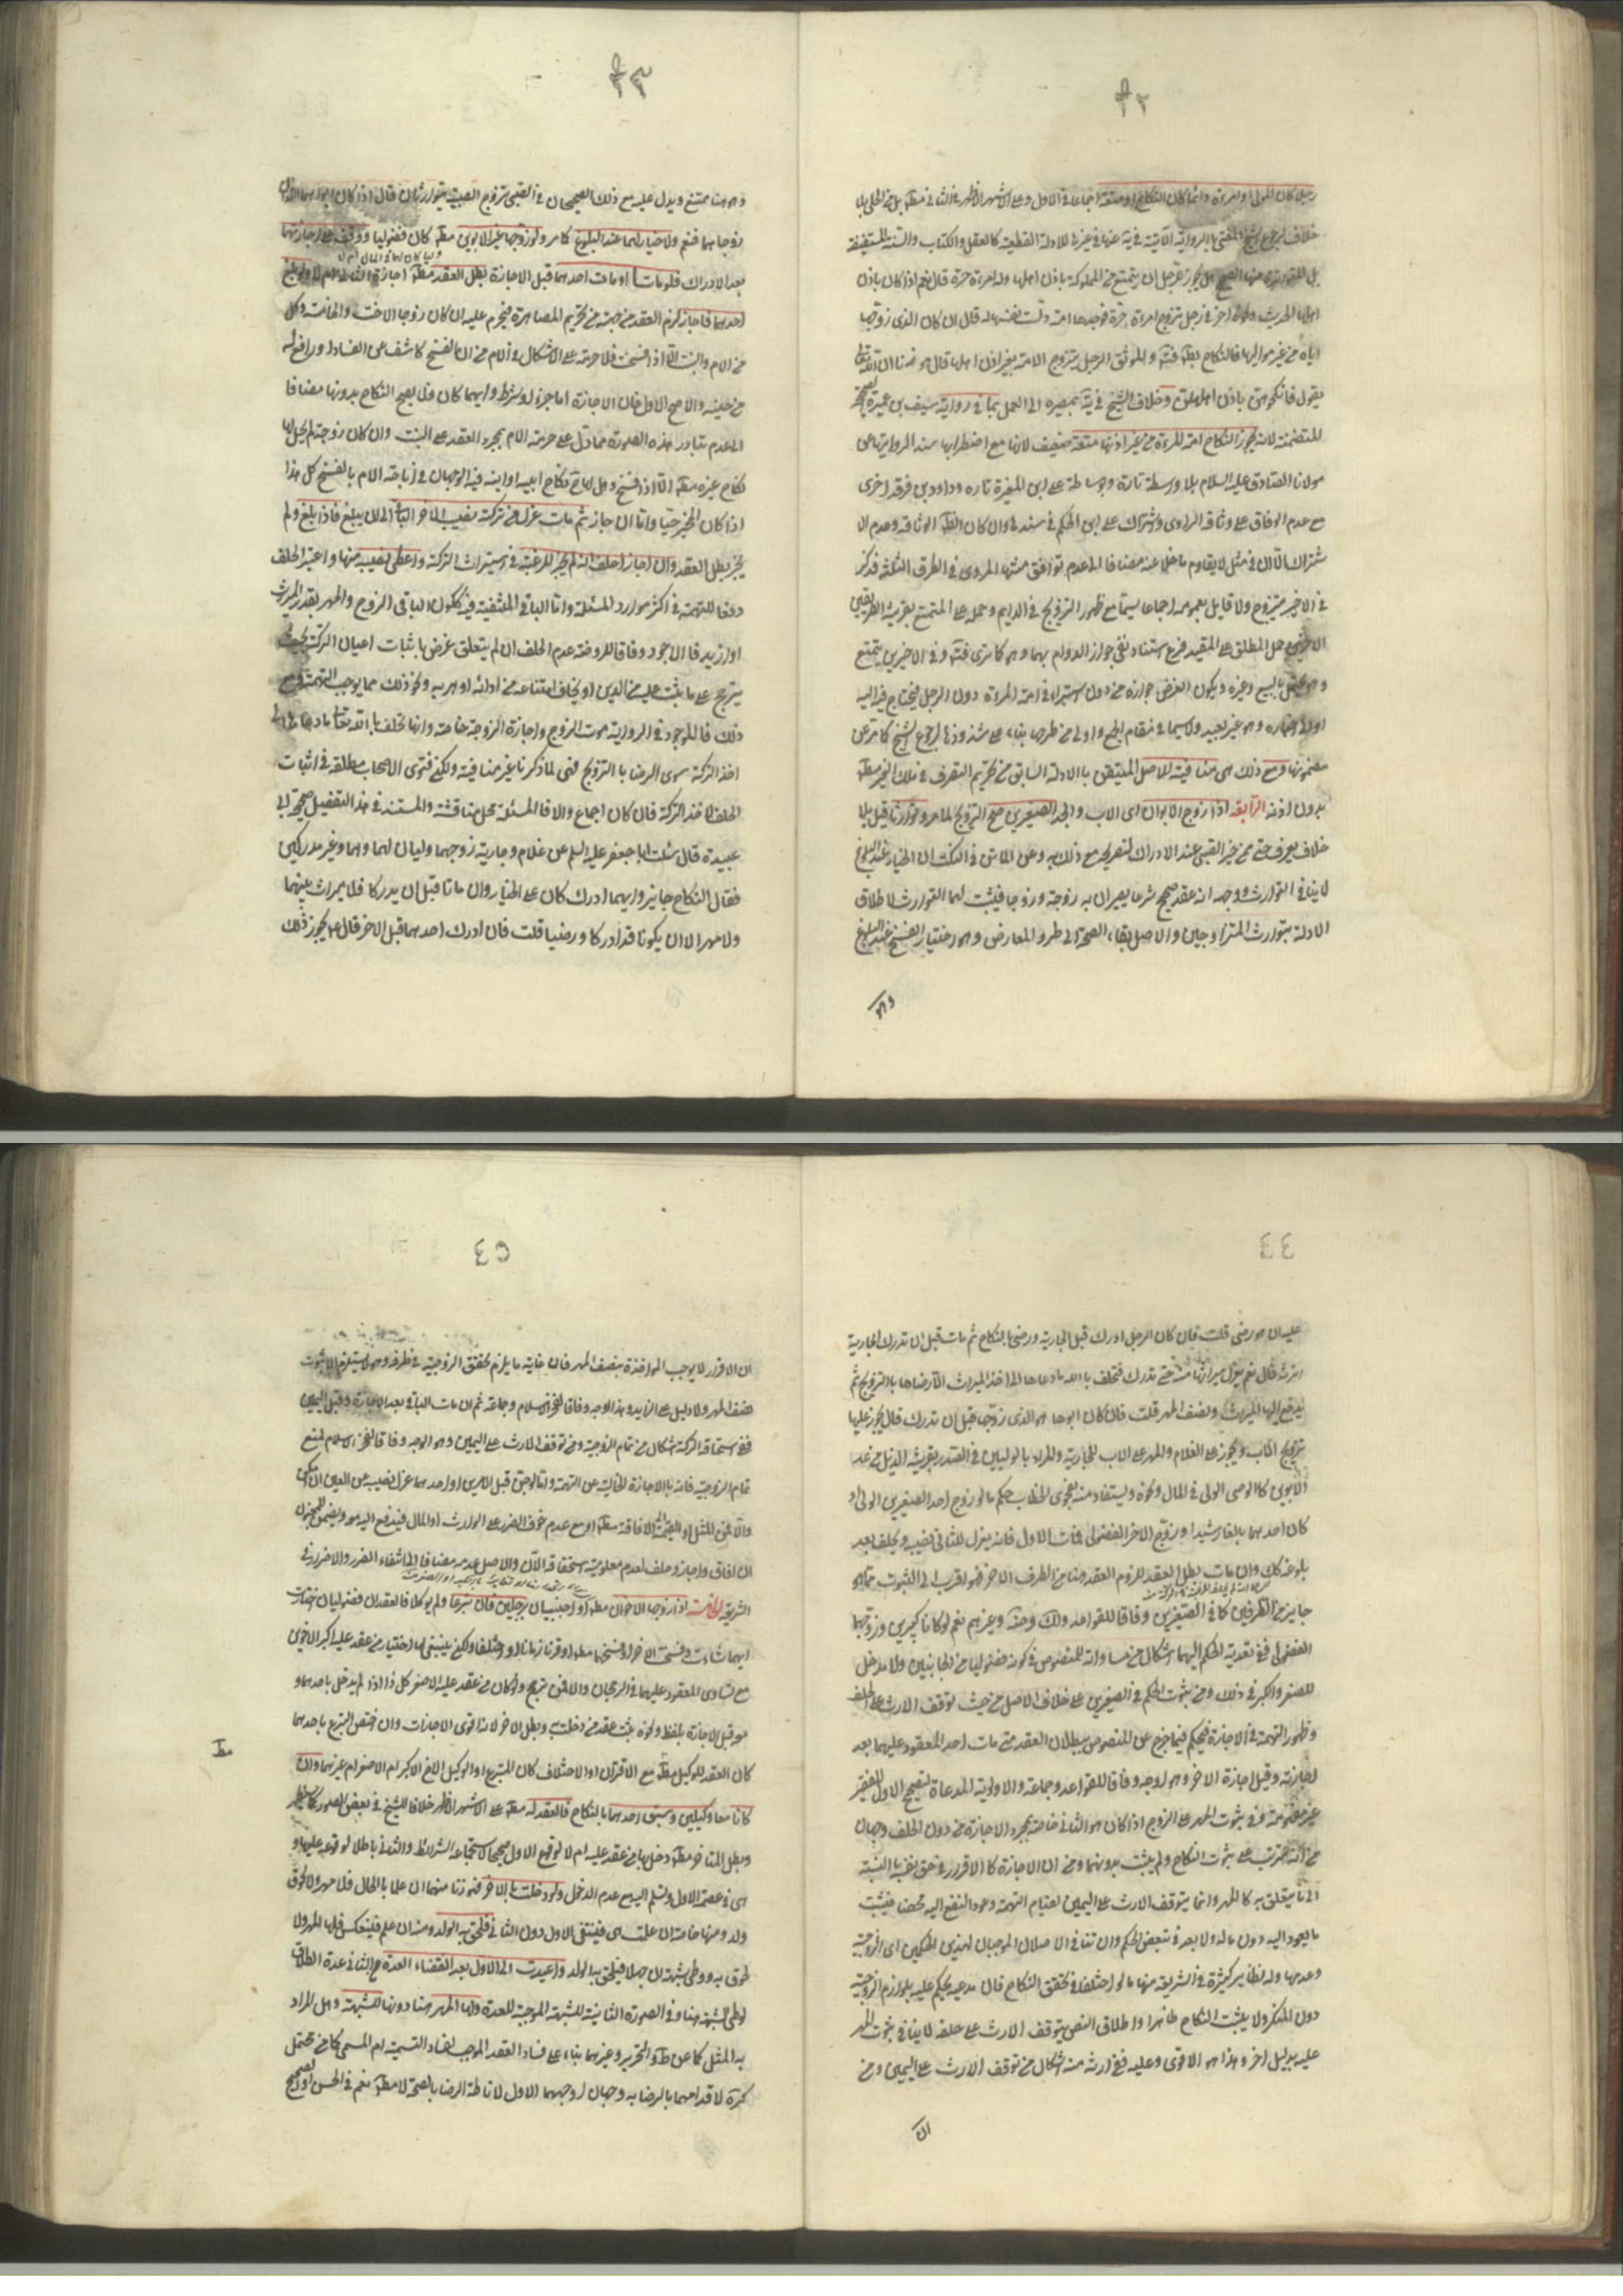 ٤٢
رجلا كان المولى او امرءة دائما كان النكاح او متعة اجماعا في الاول وعلى الاشهر الاظهر في الثاني مطلقا بل في الحلي بلا
خلاف لرجوع الشيخ المفتي بالرواية الآتية في يه عنها في غيرها للادلة القطعية كالعقل والكتاب والسنة المستفيضة
بل المتواترة منها الصحيح هل يجوز للرجل ان يتمتع من المملوكة باذن اهلها وله امرءة حرة قال نعم اذا كان باذن
اهلها الحديث ونحوه اخر في رجل تزوج امراة حرة فوجدها امة دلست نفسها له قال ان كان الذي زوجها
اياه من غير مواليها فالنكاح فاسد والموثق الرجل يتزوج الامة بغير اذن اهلها قال هو زنا ان الله تعالى
يقول فانكحوهن باذن اهلهن وخلاف الشيخ في يه بمصيره الى العمل بما في رواية سيف بن عميرة الصحيحة
المتضمنة لانه يجوز النكاح امة المرءة من غير اذنها متعة ضعيف لانها مع اضطرابها سندا لروايتها عن
مولانا الصادق عليه السلام بلا واسطة تارة وبوساطة على ابن المغيرة تارة وداود بن فرقد اخرى
مع عدم الوفاق على وثاقة الراوي واشتراك على ابن الحكم في سندها وان كان الظاهر الوثاقه وعدم الا
شتراك الا ان في مثل لا يقاوم ما خلا عنه مضافا الى عدم توافق متنها المروي في الطرق الثلثة فذكر
في الاخير يتزوج ولا قايل بعمومه اجماعا سيما مع ظهور التزويج في الدايم وحمله على المتمتع بقرينة الطريقين
الاخيرين حمل المطلق على المقيد فرع استناد نفي جواز الدوام بهما وهو كما ترى فتدبر وفي الاخيرين يتمتع
وهو يحتمل بالبيع وغيره ويكون الغرض جوازه من دون استبراء في امة المرءة دون الرجل فيحتاج فيها اليه
او الى اخباره وهو غير بعيد ولا سيما في مقام الجمع واولى من طرحها بناء على شذوذها لرجوع الشيخ كما مر عن
مضمونها ومع ذلك هي منافية للاصل المتيقن بالادلة السابق من تحريم التصرف في ملك الغير مطلقا
بدون اذنه الرابعة اذا زوج الابوان اي الاب والجد الصغيرين صح التزويج لما مر وتوارثا قيل بلا
خلاف يعرف حتى ممن خير الصبي عند الادراك لتصريحه مع ذلك به وعن الماتن في النكت ان الخيار عند البلوغ
لا ينافي التوارث ووجهه انه عقد صحيح شرعا يصير ان به زوجة وزوجا فيثبت لهما التوارث لاطلاق
الادلة بتوارث المتزاوجين والاصل بقاء الصحة الى طرو المعارض وهو اختيار الفسخ عند البلوغ
وهو
٤٣
وهو هنا ممتنع ويدل عليه مع ذلك الصحيحان في الصبي يتزوج الصبية يتوارثان قال اذا كان ابواهما اللذان
زوجاهما فنعم ولا خيار لهما عند البلوغ كما مر ولو زوجهما غير الابوين مطلقا كان فضوليا ووقف على اجازتهما
بعد الادراك فلو ماتا او مات احدهما قبل الاجازة بطل العقد مطلقا اجازة الثاني ام لا ولو بلغ
احدهما فاجاز لزم العقد من جهته من تحريم المصاهرة فيحرم عليه ان كان زوجا الاخت والخامسة وكل
من الام والبنت الا اذا فسخت فلا حرمة على الاشكال في الام من ان الفسخ كاشف عن الفساد او رافع له
من حينه والاصح الاول فان الاجازة اما جزء او شرط وايهما كان فلا يصح النكاح بدونها مضافا
الى عدم تبادر هذه الصورة مما دل على حرمة الام بمجرد العقد على البنت وان كان زوجة لم يحل لها
نكاح غيره مطلقا الا اذا فسخ وهل لها ح نكاح ابيه او ابنه فيه الوجهان في اباحة الام بالفسخ كل هذا
اذا كان المجيز حيا واما ان جاز ثم مات عزل من تركته نصيب الاخر الباقي الى ان يبلغ فاذا بلغ ولم
يجز بطل العقد وان اجاز احلف انه لم يجز للرغبة في الميراث التركة واعطى نصيبه منها واعتبر الحلف
دفعا للتهمة في اكثر موارد المسئلة واما الباقي المنتفية فيه ككون الباقي الزوج والمهر بقدر الميراث
او ازيد فالاجود وفاقا للروضة عدم الحلف ان لم يتعلق غرض باثبات اعيان التركة بحيث
يترجح على ما يثبت عليه من الدين او يخاف امتناعه من ادائه او هربه ونحو ذلك مما يوجب التهمة ومع
ذلك فالموجود في الرواية موت الزوج واجازة الزوجة خاصة وانها تحلف بالله تعالى ما دعاها الى
اخذ التركة سوى الرضا بالتزويج فهي لما ذكرنا غير منافية ولكن فتوى الاصحاب مطلقة في اثبات
الحلف لاخذ التركة فان كان اجماع والا فالمسئلة محل مناقشة والمستند في هذا التفصيل صحيحة ابي
عبيدة قال سئلت ابا جعفر عليه السلم عن غلام وجارية زوجهما وليان لهما وهما غير مدركين
فقال النكاح جايز وايهما ادرك كان على الخيار وان ماتا قبل ان يدركا فلا ميراث بينهما
ولا مهر الا ان يكونا قد ادركا ورضيا قلت فان ادرك احدهما قبل الاخر قال يجوز ذلك
٤٤
عليه ان هو رضي قلت فان كان الرجل ادرك قبل الجارية ورضى بالنكاح ثم مات قبل ان تدرك الجارية
اترثه قال نعم يعزل ميراثها منه حتى تدرك فتحلف بالله ما دعاها الى اخذ الميراث الا رضاها بالتزويج ثم
يدفع اليها الميراث ونصف المهر قلت فان كان ابوها هو الذي زوجها قبل ان تدرك قال يجوز عليها
تزويج الاب ويجوز على الغلام والمهر على الاب للجارية والمراد بالوليين في الصدر بقرينة الذيل من عدا
الابوين كالوصي الولي في المال ونحوه ويستفاد منه بفحوى الخطاب حكم ما لو زوج احد الصغيرين الولي او
كان احدهما بالغا رشيدا وزوج الاخر الفضولي فمات الاول فانه يعزل للثاني نصيبه ويحلف بعد
بلوغه كك وان مات بطل العقد للزوم العقد هنا من الطرف الاخر فهو اقرب الى الثبوت مما هو
جايز من الطرفين كما في الصغيرين وفاقا للقواعد ولك وضه وغيرهم نعم لو كانا كبيرين وزوجهما
الفضولي ففي تعدية الحكم اليهما اشكال من مساواته للمنصوص في كونه فضوليا من الجانبين ولا مدخل
للصغر والكبر في ذلك ومن ثبوت الحكم في الصغيرين على خلاف الاصل من حيث توقف الارث على الحلف
وظهور التهمة في الاجازة فيحكم فيما خرج عن المنصوص ببطلان العقد متى مات احد المعقود عليهما بعد
اجازته وقبل اجازة الاخر وهو اوجه وفاقا للقواعد وجماعة والاولوية المدعاة لتصحيح الاول للفقير
غير مفهومة وفي ثبوت المهر على الزوج اذا كان هو الثاني خاصة بمجرد الاجازة من دون الحلف وجهان
من انه مترتب على ثبوت النكاح ولم يثبت بدونهما ومن ان الاجازة كالاقرار في حق نفسه بالنسبة
الى ما يتعلق به كالمهر وانما يتوقف الارث على اليمين لقيام التهمة وعود النفع اليه محضا فيثبت
ما يعود اليه دون ماله ولا بعد في تبعض الحكم وان تنافى الاصلان الموجبان لهذين الحكمين اى الزوجية
وعدمها وله نظاير كثيرة في الشريعة منها ما لو اختلفا في تحقق النكاح فان مدعيه يحكم عليه بلوازم الزوجية
دون المنكر ولا يثبت النكاح ظاهرا واطلاق النص بتوقف الارث على حلفه لا ينافي ثبوت المهر
عليه بدليل اخر وهذا هو الاقوى وعليه ففي ارثه منه اشكال من توقف الارث على اليمين ومن
ان
٤٥
ان الاقرار لا يوجب المؤاخذة بنصف المهر فان غاية ما يلزم تحقق الزوجية في طرفه وهو لا يستلزم الا ثبوت
نصف المهر ولا دليل على الزايد وهذا اوجه وفاقا لفخر الاسلام وجماعة ثم ان مات الباقي بعد الاجازة وقبل اليمين
ففي استحقاقه التركة اشكال من تمام الزوجية ومن توقف الارث على اليمين وهو الاوجه وفاقا لفخر الاسلام لمنع
تمام الزوجية فانه بالاجازة الخالية عن التهمة ولو جن قبل الامرين او احدهما عزل نصيبه من العين ان امكن
والا فمن المثل او القيمة الى الافاقة مطلقا او مع عدم خوف الضرر على الوارث او المال فيندفع اليه هو ويضمن للمجنون
ان افاق واجاز وحلف لعدم معلومية استحقاقه الآن والاصل عدمه مضافا الى انتفاء الضرر والاضرار في
الشريعة الخامسة اذا زوجها الاخوان مطلقا او اجنبيان برجلين فان تبرعا ولم يوكلا فالعقدان فضوليان ختارت
ايهما شاءت وفسخت الاخر او فسختهما مطلقا اقترنا زمانا او اختلفا ولكن ينبغي لها اختيار من عقد عليه اكبر الاخوين
مع تساوي المعقود عليهما في الرجحان والا فمن ترجح ولو كان من عقد عليه الاصغر كل ذا اذا لم يدخل باحدهما و
هو قبل الاجازة بلفظ ونحوه ثبت عقد من دخلت به وبطل الاخر لانه اقوى الاجازات وان اختص التبرع باحدهما
كان العقد للوكيل مطلقا مع الاقتران او الاختلاف كان المتبرع او الوكيل الاخ الاكبر ام الاصغر ام غيرهما وان
كانا معا وكيلين وسبق احدهما بالنكاح فالعقد له مطلقا على الاشهر الاظهر خلافا للشيخ في بعض الصور كما سيظهر
وبطل المتاخر مطلقا دخل بها من عقد عليه ام لا لوقوع الاول صحيحا لاستجماعه الشرائط والثاني باطلا لوقوعه عليها و
هي في عصمة الاول وتسلم اليه مع عدم الدخول ولو دخلت بالاخر فهو زنا منهما ان علما بالحال فلا مهر ولا لحوق
ولد ومنها خاصة ان علمت هي فينتفي الاول دون الثاني فلحق به الولد ومنه ان علم فلينعكس فلها المهر ولا
لحوق به ووطى شبهة ان جهلا فيلحق به الولد واعيدت الى الاول بعد انقضاء العدة مع الثاني عدة الطلاق
لوطى الشبهة هنا وفي الصورة الثانية للشبهة الموجبة للعدة ولها المهر هنا دونها للشبهة وهل المراد
به المثل كما عن ط والتحرير وغيرهما بناء على فساد العقد الموجب لفساد التسمية ام المسمى كما من محتمل
كره لاقدامهما بالرضا به وجهان اوجههما الاول لاناطة الرضا بالصحة لا مطلقا نعم في الحسن او الصحيح